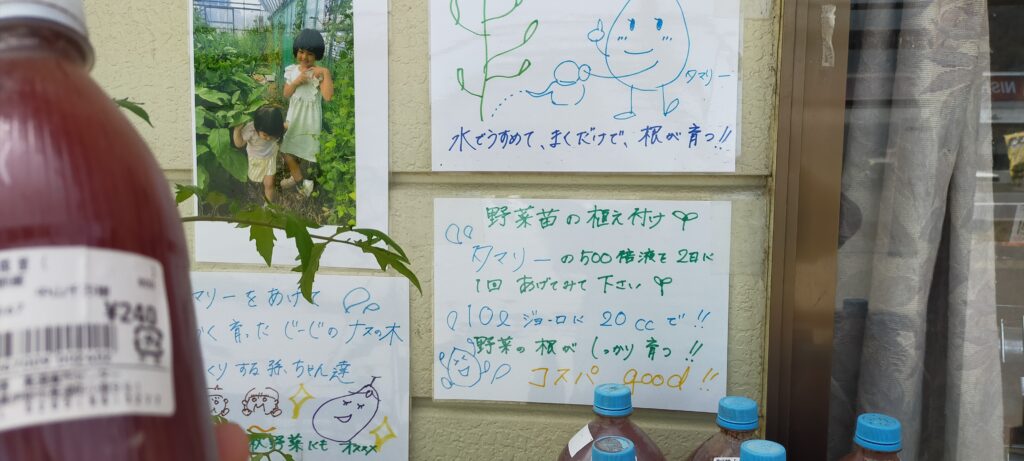 タマリー
水でうすめて、まくだけで、根が育つ!!
野菜苗の植え付け
タマリーの500倍液を2日に
1回 あげてみて下さい
10ℓジョーロに20ccで!!
野菜の根がしっかり育つ!!
コスパgood!!
マリーをあげて
く育ったじーじのナスの木
くりする孫ちゃん達
野菜にもオススメ
¥240